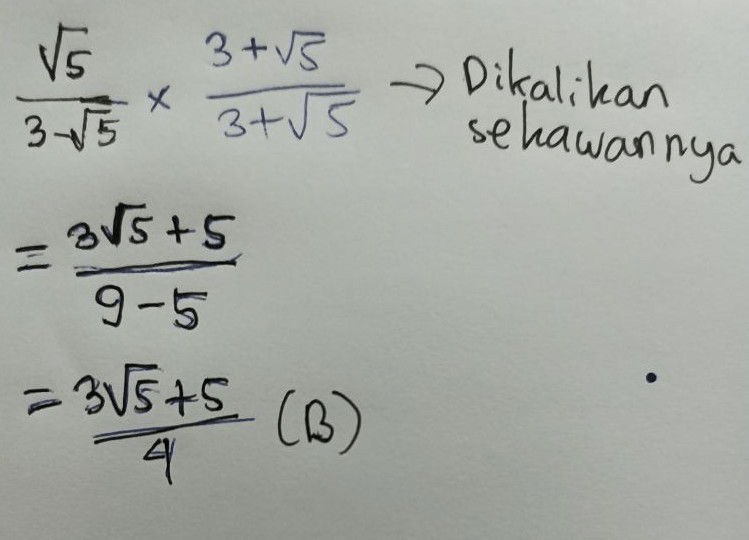 √5/(3-√5) × (3+√5)/(3+√5) → Dikalikan
sekawannya
= (3√5+5)/(9-5)
= (3√5+5)/4 (B)